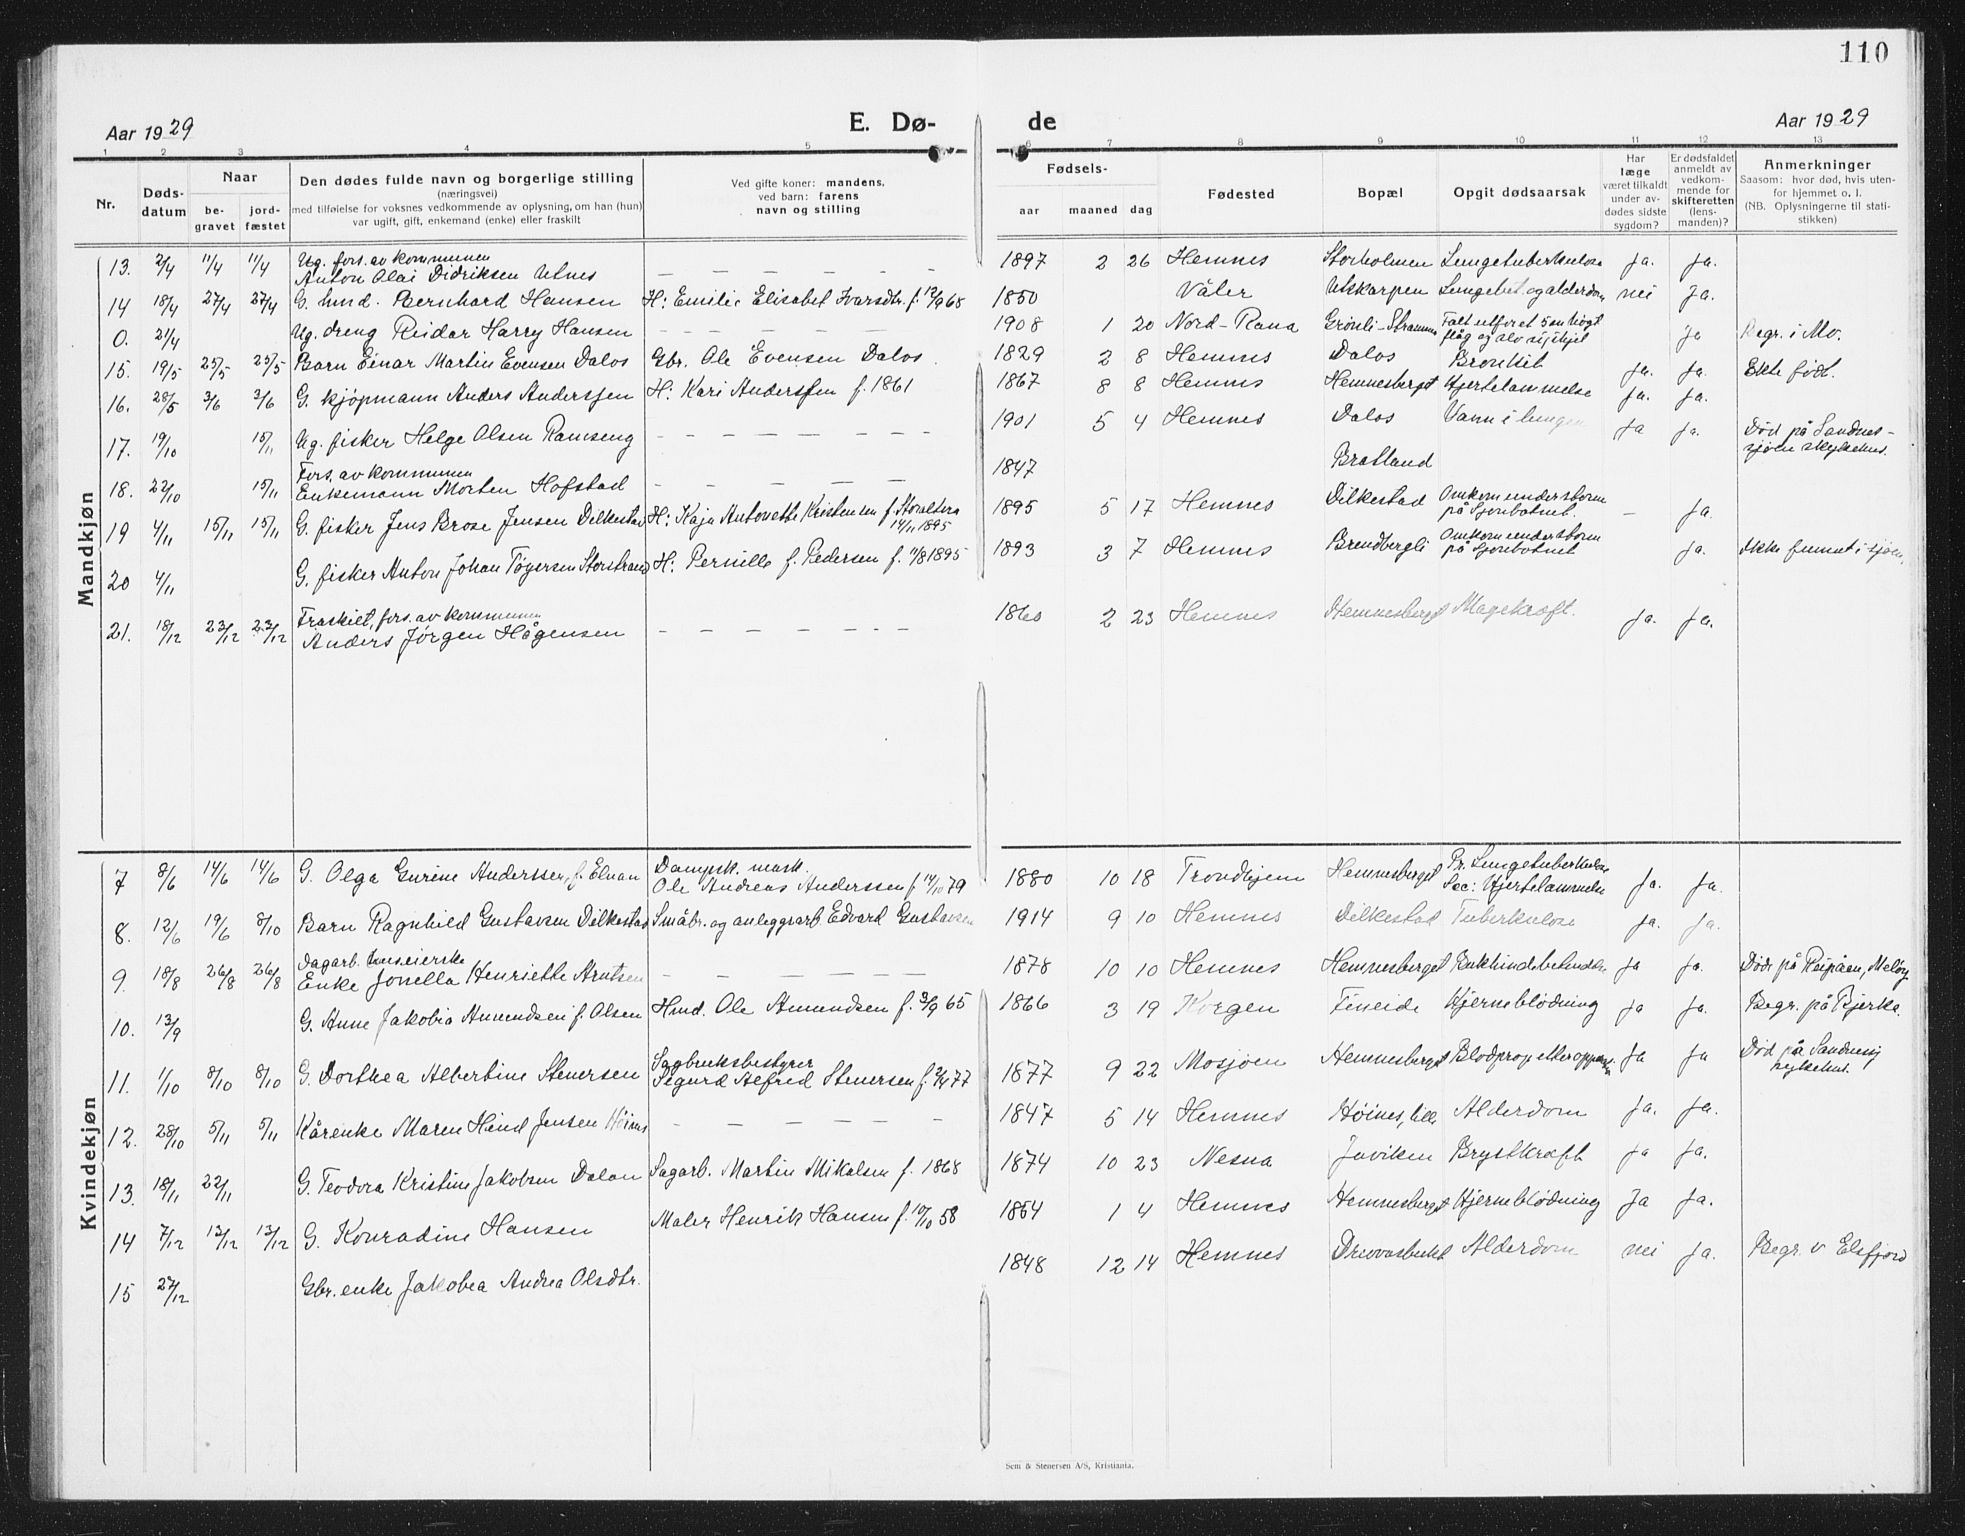 110
Aar 1929
E. Dø-
de
Aar 1929
1 2 3 4 5 6 7 8 9 10 11 12 13
Nr.
Døds-
datum
Naar
be-
gravet
jord-
fæstet
Den dødes fulde navn og borgerlige stilling
(næringsvei)
med tilføielse for voksnes vedkommende av oplysning, om han (hun)
var ugift, gift, enkemand (enke) eller fraskilt
Ved gifte koner: mandens,
ved barn: farens
navn og stilling
Fødsels-
aar maaned dag
Fødested
Bopæl
Opgit dødsaarsak
Har
læge
været tilkaldt
under av-
dødes sidste
sygdom?
Er dødsfaldet
anmeldt av
vedkom-
mende for
skifteretten
(lens-
manden)?
Anmerkninger
Saasom: hvor død, hvis uten-
for hjemmet o. l.
(NB. Oplysningerne til stati-
stikken)
Mandkjøn
13. 2/4 11/4 11/4 Ug. fors. av kommunen
Anton Olai Didriksen Utnes — — — — — — 1897 2 26 Hemnes Storholmen Lungetuberkulose ja. ja.
14 18/4 27/4 27/4 G. hmd. Bernhard Hansen H: Emilie Elisabet Ivarsdtr. f. 12/9 68 1850 Våler Utskarpen Lungebet. og alderdom nei Ja.
0. 21/4 Ug. dreng Reidar Harry Hansen — — — — — — 1908 1 20 Nord-Rana Grönli-Straumen Falt utfor et 5 m høgt
flåg og slo sig ihjel ja Begr. i Mo.
15. 19/5 25/5 25/5 Barn Einar Martin Evensen Dalos Gbr. Ole Evensen Dalos. 1829 2 8 Hemnes Dalos Bronkit ja. ja. Ekte født.
16. 28/5 3/6 3/6 G. kjöpmann Anders Anderssen H: Kari Anderssen f. 1861 1867 8 8 Hemnes Hemnesberget Hjertelammelse ja. ja.
17. 19/10 15/11 Ug. fisker Helge Olsen Ramseng — — — — — — 1901 5 4 Hemnes Dalos Vann i lungen ja ja. Död på Sandnes-
sjöen sykehus.
18. 22/10 15/11 Fors. av kommunen
Enkemann Morten Hofstad — — — — — — 1847 Bratland
19 4/11 15/11 15/11 G. fisker Jens Brose Jensen Dilkestad H: Kaja Antonette Kristensen f. Storltera
14/11 1895 1895 5 17 Hemnes Dilkestad Omkom under storm
på Sjonbotnet. — ja.
20 4/11 G. fisker Anton Johan Tögersen Storstrand H: Pernille f. Pedersen f. 11/8 1895 1893 3 7 Hemnes Brendbergli Omkom under storm
på Sjonbotnet ja. Ikke funnet i sjöen.
21. 18/12 23/12 23/12 Fraskilt, fors. av kommunen
Anders Jörgen Hågensen — — — — — — 1860 2 23 Hemnes Hemnesberget Magekræft. ja. ja.
Kvindekjøn
7 8/6 14/6 14/6 G. Olga Gurine Anderssen, f. Elnan Dampsk. mask.
Ole Andreas Anderssen f. 14/10 79 1880 10 18 Trondhjem Hemnesberget Pr. Lungetuberkulose
Sec: Hjertelammelse ja. ja.
8. 12/6 19/6 8/10 Barn Ragnhild Gustavsen Dilkestad Småbr. og anleggsarb. Edvard Gustavsen 1914 9 10 Hemnes Dilkestad Tuberkulose ja. ja.
9. 18/8 26/8 26/8 Dagarb. huseierske
Enke Jonella Henriette Arntsen — — — — — 1878 10 10 Hemnes Hemnesberget Bukhindebetendelse ja ja. Död på Reipåen, Meløy
10. 13/9 G. Anne Jakobia Amundsen f. Olsen Hmd. Ole Amundsen f. 3/9 65 1866 3 19 Korgen Fineide Hjerneblödning ja ja. Begr. på Bjerka.
11. 1/10 8/10 8/10 G. Dorthea Albertine Stenersen Sagbruksbestyrer
Sigurd Alfred Stenersen f. 2/4 77 1877 9 22 Mosjöen Hemnesberget Blodprop etter ja ja Död på Sandnessj
sykehus.
12. 28/10 5/11 5/11 Kårenke Maren Hind Jensen Höines — — — — — — 1847 5 14 Hemnes Höines, lille Alderdom ja. ja.
13. 18/11 22/11 G. Teodora Kristine Jakobsen Dalan Sagarb. Martin Mikalsen f. 1868 1874 10 23 Nesna Juviken Brystkræft ja ja.
14 7/12 13/12 13/12 G. Konradine Hansen Maler Henrik Hansen f. 10/10 58 1854 1 4 Hemnes Hemnesberget Hjerneblödning ja ja.
15 27/12 Gbr. enke Jakobea Andrea Olsdtr. 1848 12 14 Hemnes Drevvasbukt Alderdom nei ja. Begr. v Elsfjord
Sem & Stenersen A/S, Kristiania.